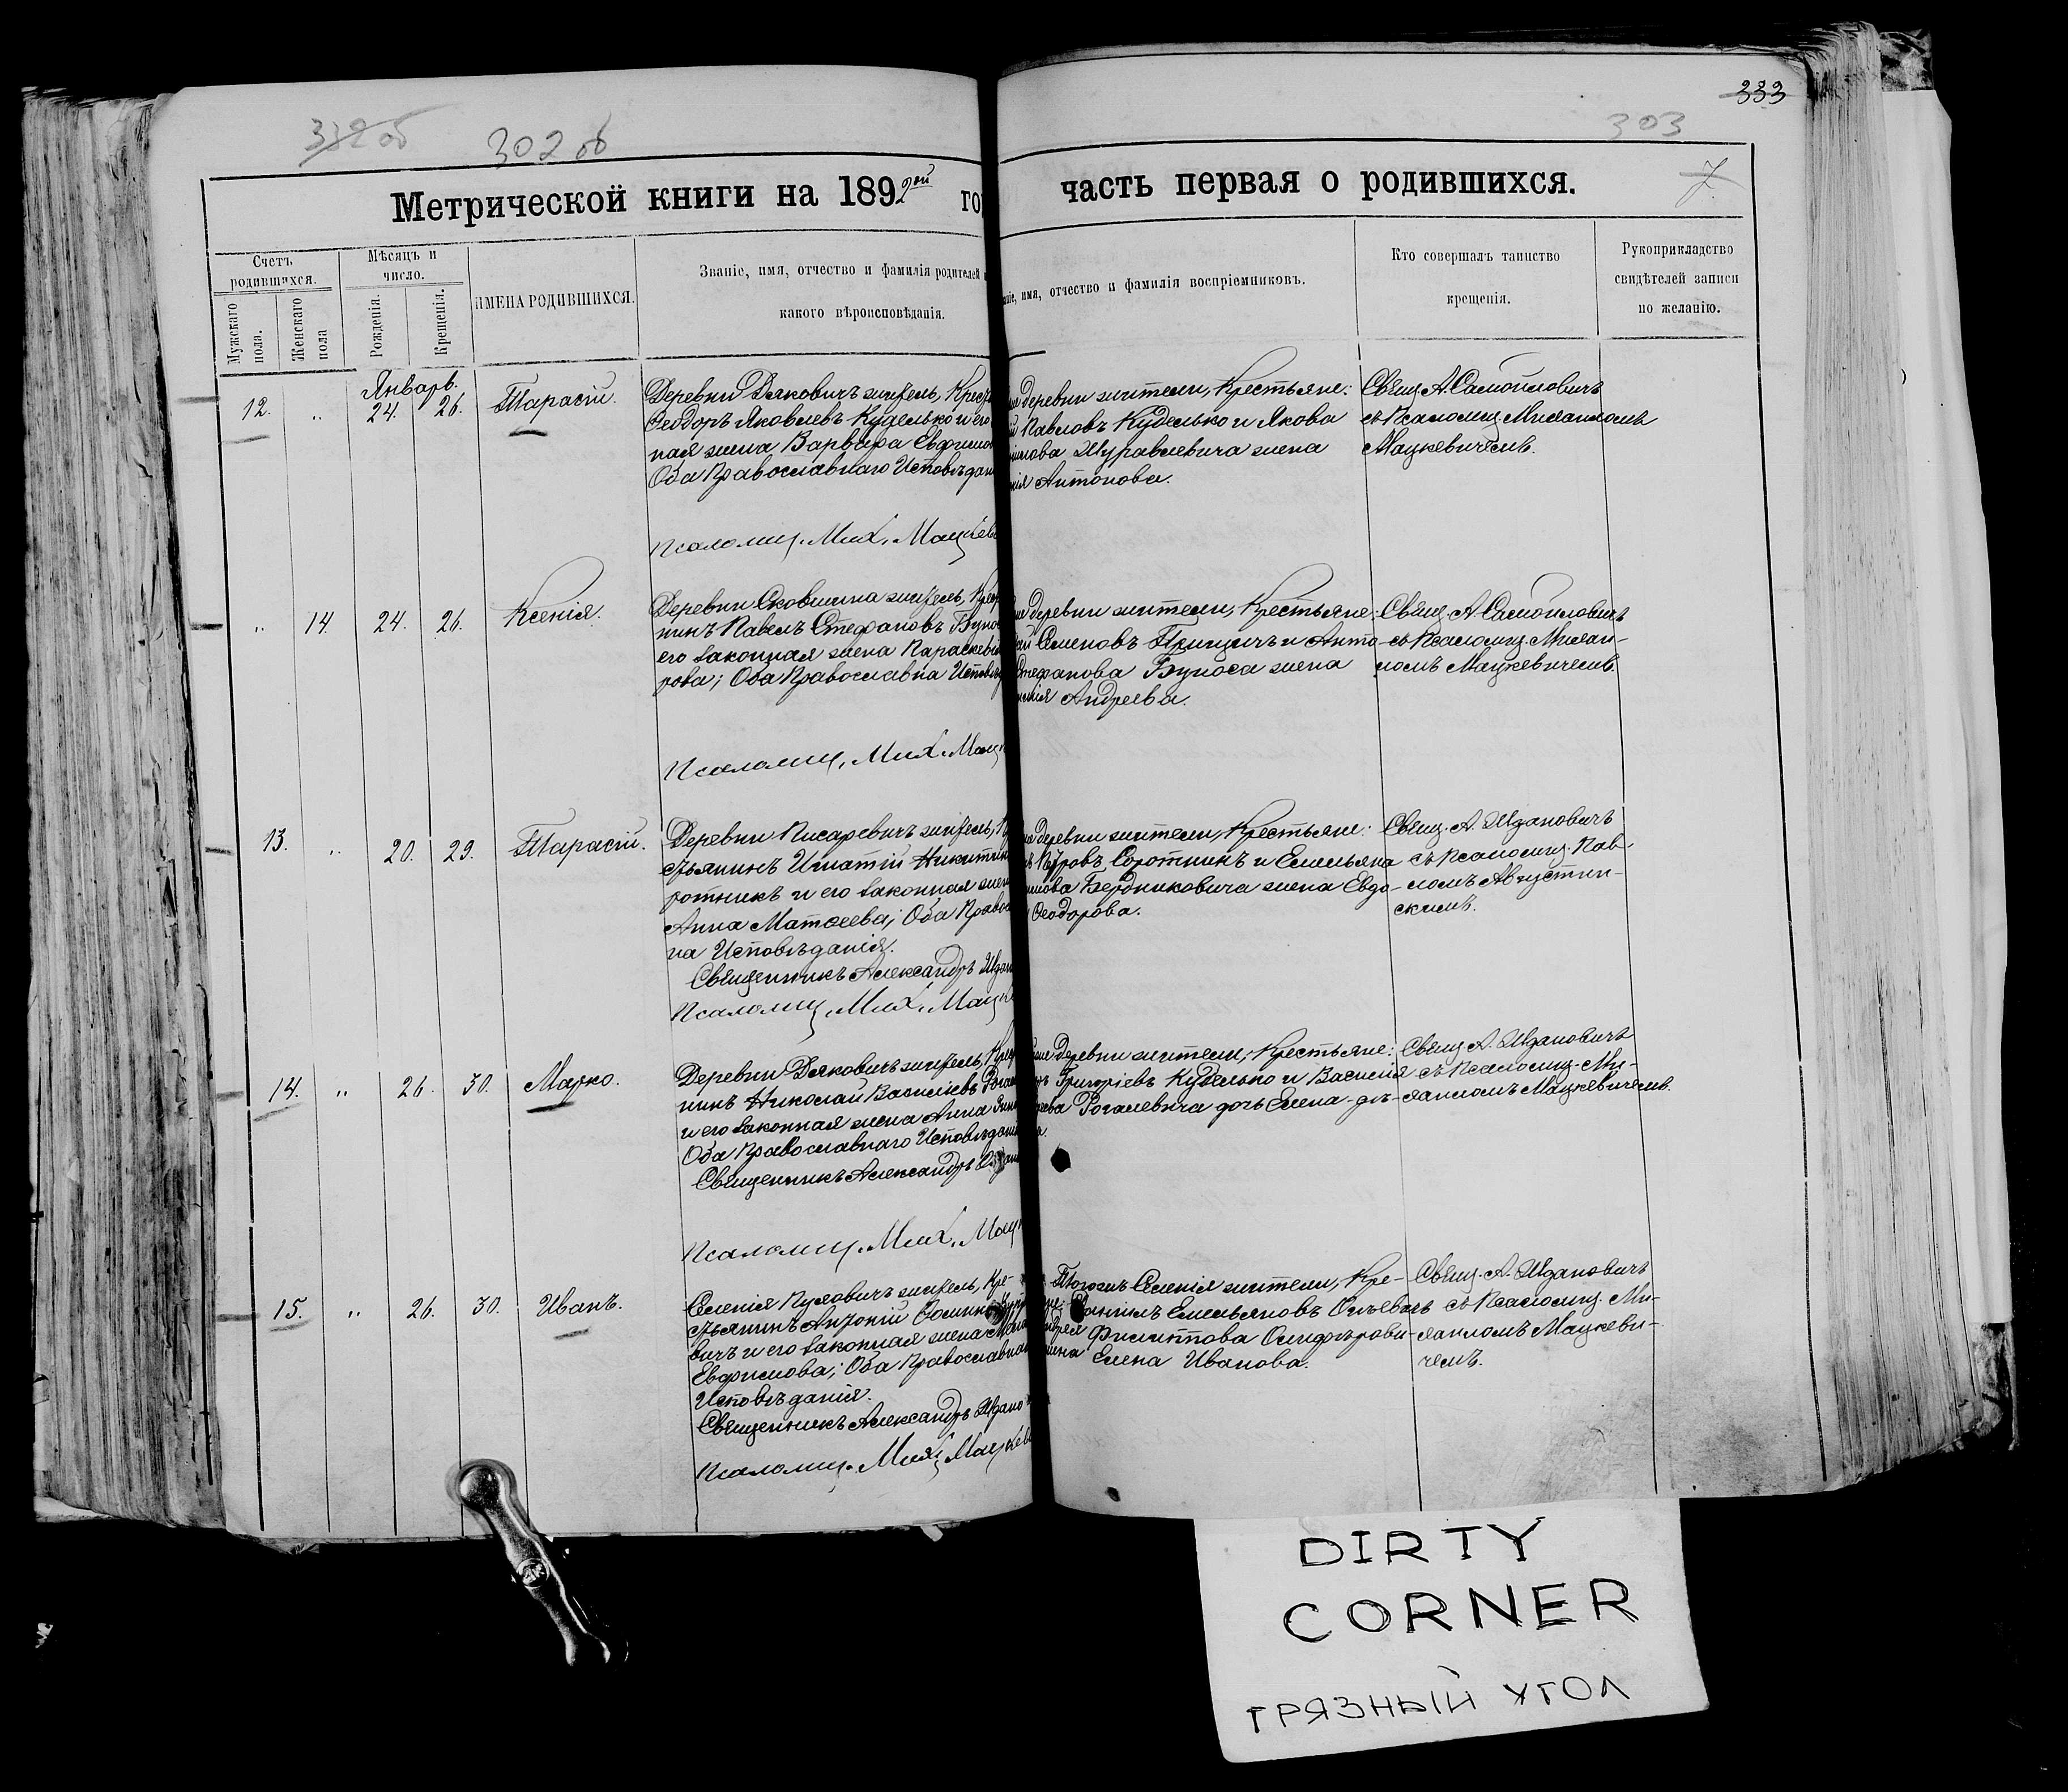 332 об
302 об
333
303
7.
Метрической книги на 1892ой го
часть первая о родившихся.
Счетъ родившихся.
Мужскаго пола.
Женскаго пола
Мѣсяцъ и число.
Рожденія.
Крещенія.
ИМЕНА РОДИВШИХСЯ.
Званіе, имя, отчество и фамилія родителей
какого вѣроисповѣданія.
имя, отчество и фамилія воспріемниковъ.
Кто совершалъ таинство
крещенія.
Рукоприкладство
свидѣтелей записи
по желанію.
Январь.
12. " 24. 26. Тарасій.
Деревни Дяковичъ житель, Крест
Ѳеодоръ Яковлевъ Куделько и его
ная жена Варвара Евфимов
Оба Православнаго Исповѣдан
Псаломщ. Мих. Мацкев
деревни жители, Крестьяне:
Павловъ Куделько и Якова
Журавлевича жена
Антонова.
Свящ. А. Самойловичъ
съ Псаломщ. Михаиломъ
Мацкевичемъ.
" 14. 24. 26. Ксенія.
Деревни житель, Крес
нинъ Павелъ Стефановъ
его законная жена Параскев
рова; Оба Православна Исповѣд
Псаломщ. Мих. Мац
деревни жители, Крестьяне:
Семеновъ Прицичъ и Анто
Стефанова Буноса жена
Андреева.
Свящ. А. Самойловичъ
съ Псаломщ. Михаи-
ломъ Мацкевичемъ.
13. " 20. 29. Тарасій.
Деревни Писаревичъ житель,
стьянинъ Игнатій Никитин
ротникъ и его законная жен
Анна Матѳеева; Оба Правос
на Исповѣданія.
Священникъ Александръ Ждан
Псаломщ. Мих. Мацк
деревни жители, Крестьяне:
Петровъ Соротникъ и Емельяна
Бердниковича жена Евдо-
Ѳеодорова.
Свящ. А. Ждановичъ
съ Псаломщ. Пав-
ломъ Августин-
скимъ.
14. " 26. 30. Марко.
Деревни Дяковичъ житель, Крес
нинъ Николай Васильевъ Рога
и его законная жена Анна
Оба Православнаго Исповѣдан
Священникъ Александръ Ждан
Псаломщ. Мих. Мацк
деревни жители, Крестьяне:
Григоріевъ Куделько и Василія
Рогалевича дочь Елена дѣ-
Свящ. А. Ждановичъ
съ Псаломщ. Ми-
хаиломъ Мацкевичемъ.
15. " 26. 30. Иванъ.
Селенія Пуховичъ житель, Кре-
стьянинъ Антоній
вичъ и его законная жена
Евфимова; Оба Православнаго
Исповѣданія.
Священникъ Александръ Ждано
Псаломщ. Мих. Мацкев
Тогожъ Селенія жители, Кре-
Емельяновъ
Филиппова
Елена Иванова.
Свящ. А. Ждановичъ
съ Псаломщ. Ми-
хаиломъ Мацкеви-
чемъ.
DIRTY
CORNER
ГРЯЗНЫЙ УГОЛ